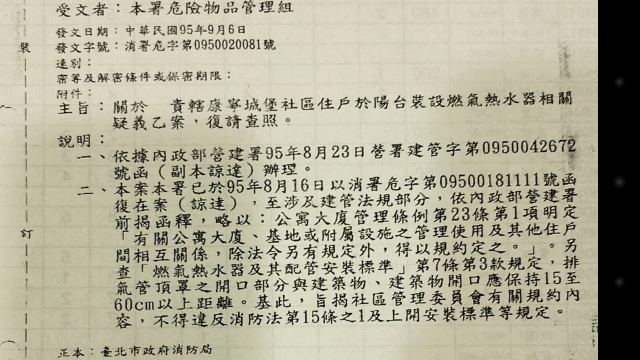 受文者：本署危險物品管理組
發文日期：中華民國95年9月6日
發文字號：消署危字第0950020081號
速別：
密等及解密條件或保密期限：
附件：
主旨：關於　貴轄康寧城堡社區住戶於陽台裝設燃氣熱水器相關
疑義乙案，復請查照。
說明：
一、依據內政部營建署95年8月23日營署建管字第0950042672
號函（副本諒達）辦理。
二、本案本署已於95年8月16日以消署危字第09500181111號函
復在案（諒達），至涉及建管法規部分，依內政部營建署
前揭函釋，略以：公寓大廈管理條例第23條第1項明定
「有關公寓大廈、基地或附屬設施之管理使用及其他住戶
間相互關係，除法令另有規定外，得以規約定之。」。另
查「燃氣熱水器及其配管安裝標準」第7條第3款規定，排
氣管頂罩之開口部分與建築物、建築物開口應保持15至
60cm以上距離。基此，旨揭社區管理委員會有關規約內
容，不得違反消防法第15條之1及上開安裝標準等規定。
正本：臺北市政府消防局
裝
訂